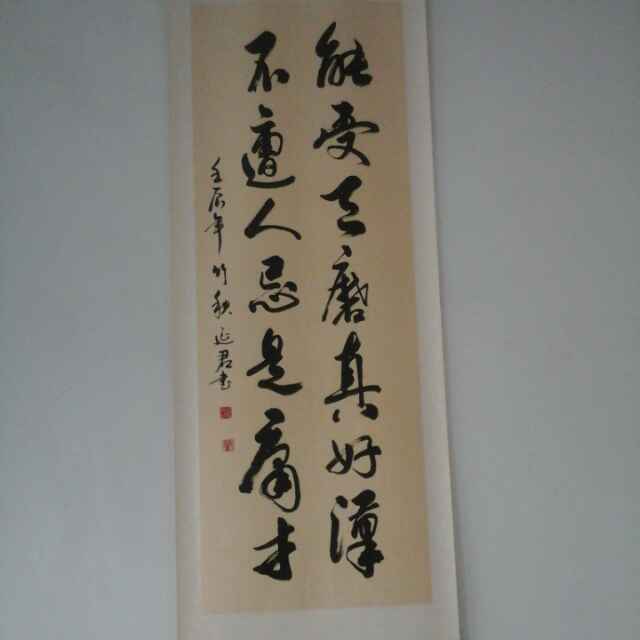 能受天磨真好汉
不遭人忌是庸才
壬辰年竹秋延君书